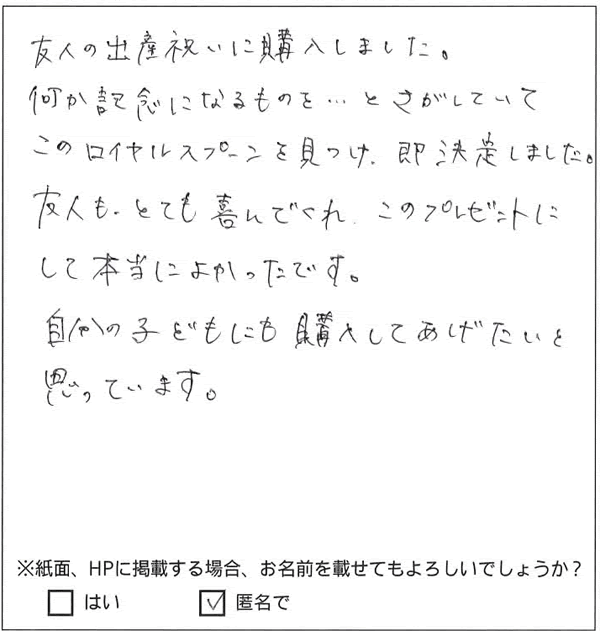 友人の出産祝いに購入しました。
何か記念になるものを…とさがしていて
このロイヤルスプーンを見つけ、即決定しました。
友人も、とても喜んでくれ、このプレゼントに
して本当によかったです。
自分の子どもにも購入してあげたいと
思っています。
※紙面、HPに掲載する場合、お名前を載せてもよろしいでしょうか？
□ はい ☑ 匿名で